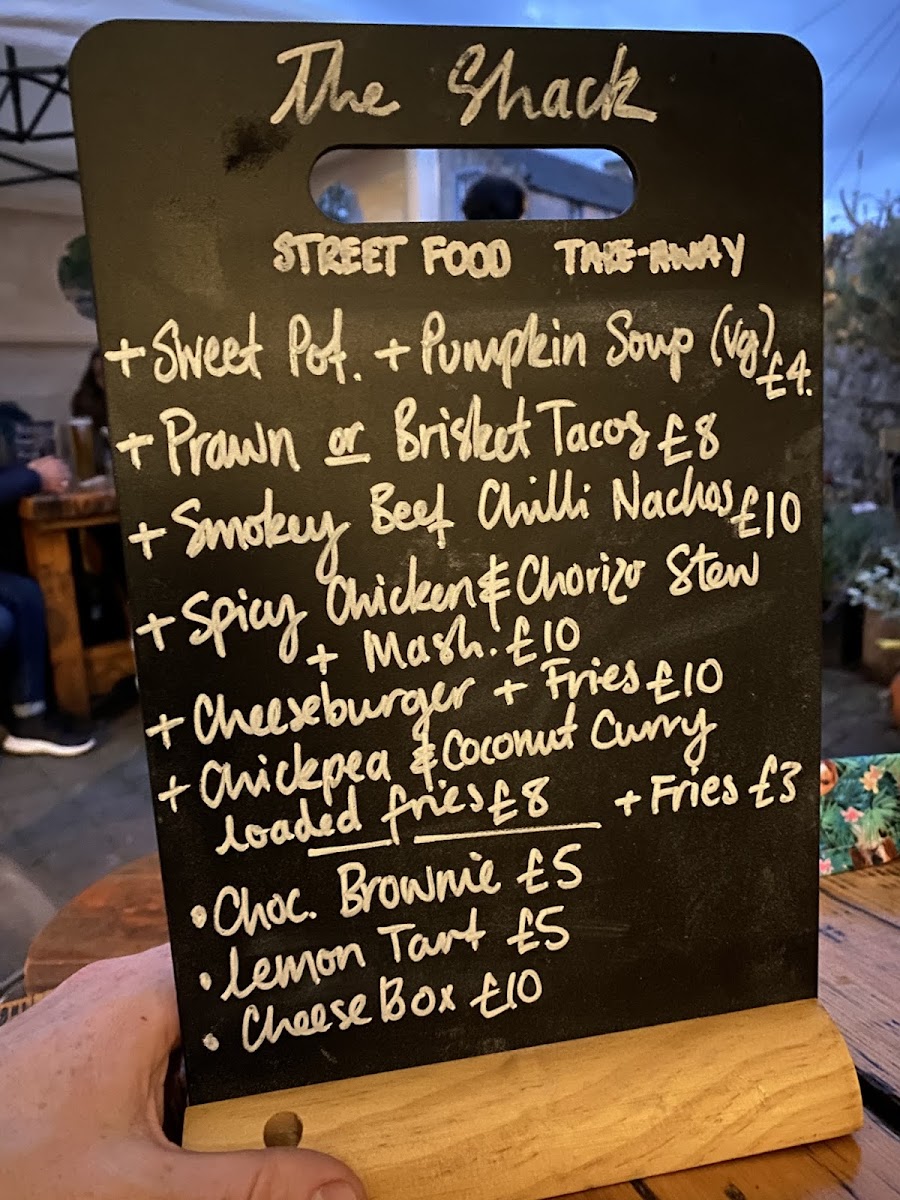 The Shack
STREET FOOD TAKE-AWAY
+ Sweet Pot. + Pumpkin Soup (vg) £4.
+ Prawn or Brisket Tacos £8
+ Smokey Beef Chilli Nachos £10
+ Spicy Chicken & Chorizo Stew
+ Mash. £10
+ Cheeseburger + Fries £10
+ Chickpea & Coconut Curry
loaded fries £8 + Fries £3
• Choc. Brownie £5
• Lemon Tart £5
• Cheese Box £10